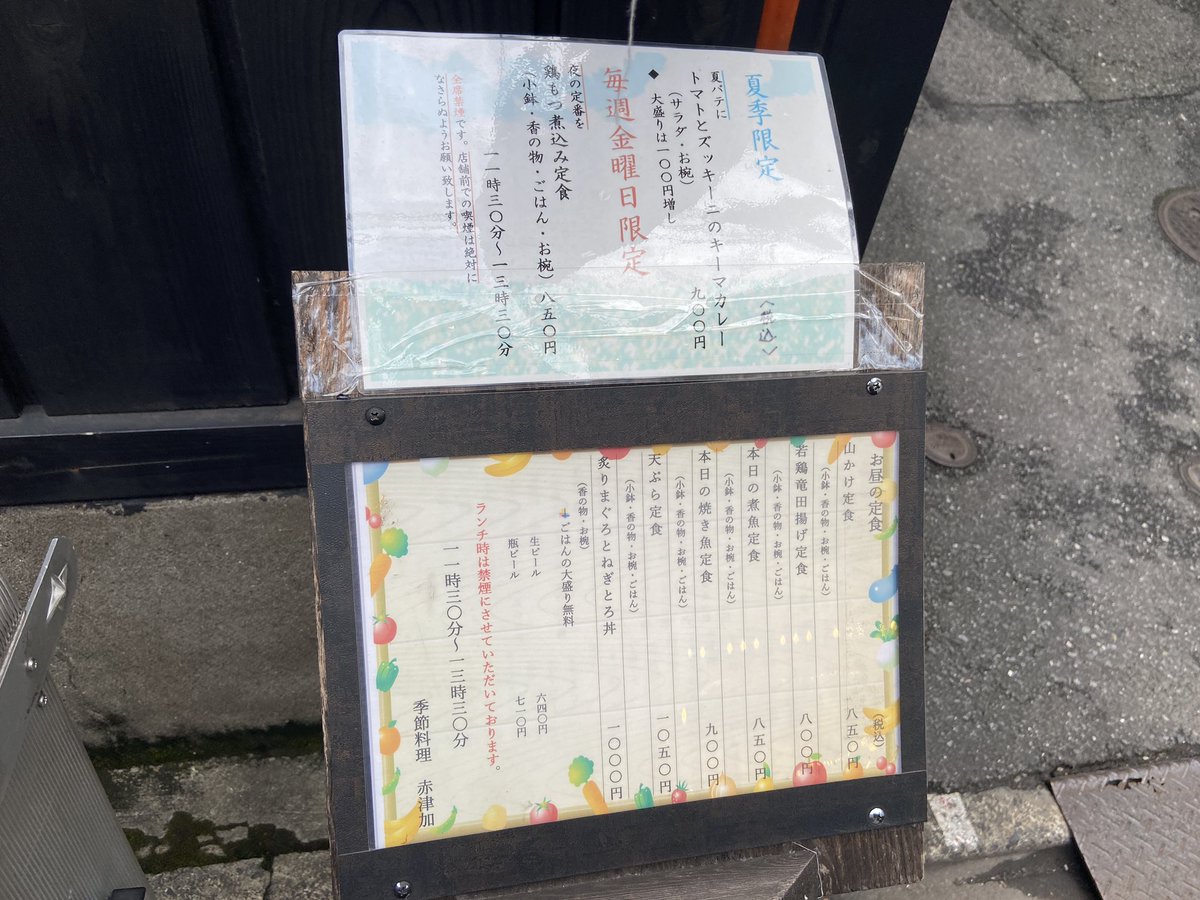 夏季限定
〈税込〉
夏バテに
トマトとズッキーニのキーマカレー
（サラダ・お椀） 九〇〇円
◆ 大盛りは一〇〇円増し
毎週金曜日限定
夜の定番を
鶏もつ煮込み定食
（小鉢・香の物・ごはん・お椀）八五〇円
一一時三〇分〜一三時三〇分
全席禁煙です。店舗前での喫煙は絶対に
なさらぬようお願い致します。
お昼の定食 （税込）
山かけ定食 八五〇円
（小鉢・香の物・お椀・ごはん）
若鶏竜田揚げ定食 八〇〇円
（小鉢・香の物・お椀・ごはん）
本日の煮魚定食 八五〇円
（小鉢・香の物・お椀・ごはん）
本日の焼き魚定食 九〇〇円
（小鉢・香の物・お椀・ごはん）
天ぷら定食 一〇五〇円
（小鉢・香の物・お椀・ごはん）
炙りまぐろとねぎとろ丼 一〇〇〇円
（香の物・お椀）
ごはんの大盛り無料
生ビール 六四〇円
瓶ビール 七一〇円
ランチ時は禁煙にさせていただいております。
一一時三〇分〜一三時三〇分
季節料理 赤津加